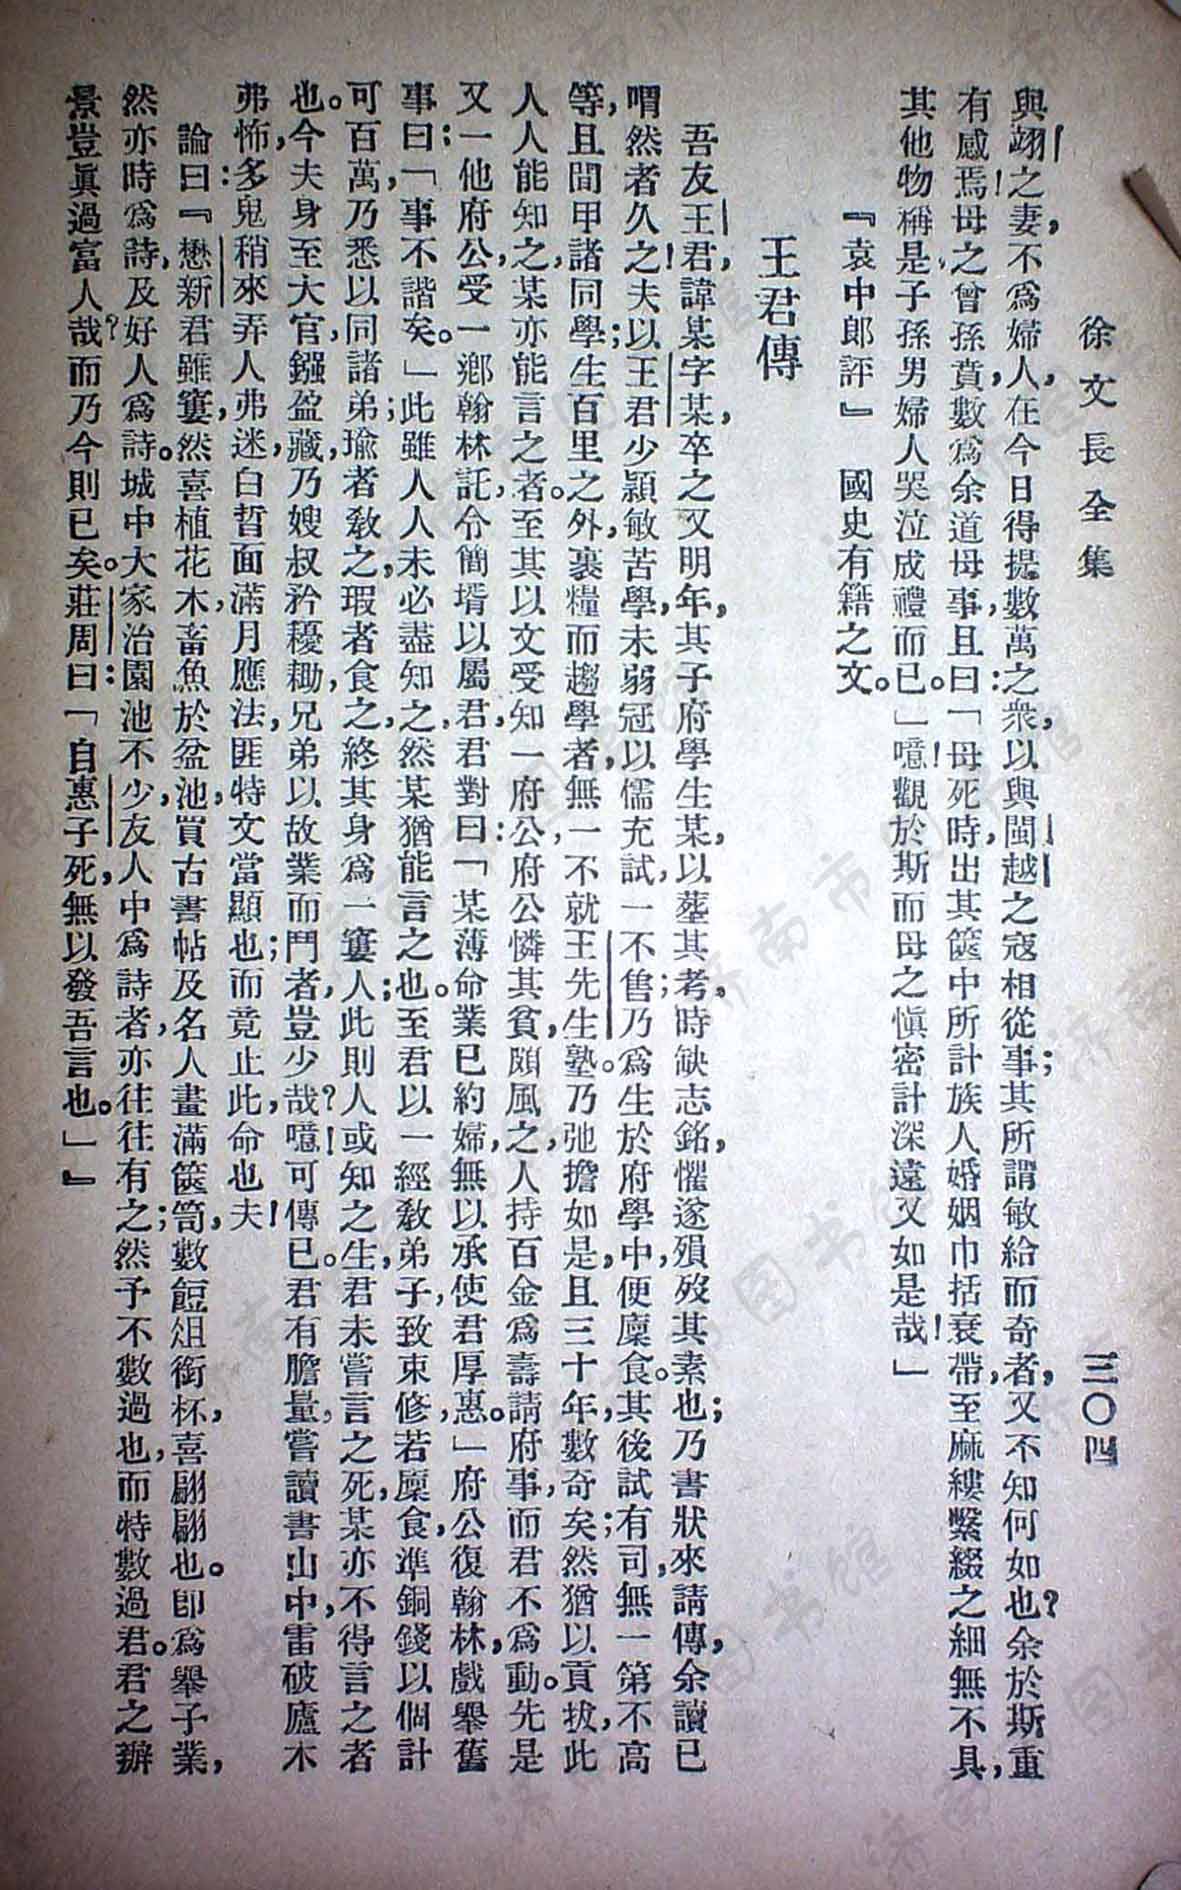 徐文長全集
三〇四
與翊之妻，不爲婦人，在今日得提數萬之衆，以與閩越之寇相從事；其所謂敏給而奇者，又不知何如也？余於斯重
有感焉！母之曾孫賁，數爲余道母事，且曰：「母死時，出其篋中所計族人婚姻巾括衰帶，至麻縷繫綴之細無不具，
其他物稱是，子孫男婦人哭泣成禮而已。」噫！觀於斯而母之愼密計深遠又如是哉！」
『袁中郎評』　國史有籍之文。
王君傳
吾友王君，諱某，字某，卒之又明年，其子府學生某，以葬其考；時缺志銘，懼遂殞歿其素也；乃書狀來請傳，余讀已
喟然者久之！夫以王君少穎敏苦學，未弱冠以儒充試，一不售，乃爲生於府學中，便廩食。其後試有司，無一第不高
等，且間甲諸同學生；百里之外，裹糧而趨學者，無一不就王先生塾。乃弛擔如是，且三十年，數奇矣；然猶以貢拔，此
人人能知之，某亦能言之者。至其以文受知一府公，府公憐其貧，頗風之，人持百金爲壽，請府事，而君不爲動。先是
又一他府公，受一鄉翰林託，令簡壻以屬君，君對曰：「某薄命，業已約婦，無以承使君厚惠。」府公復翰林，戲舉舊
事曰：「事不諧矣。」此雖人人未必盡知之，然某猶能言之也。至君以一經敎弟子，致束修，若廩食，準銅錢以個計
可百萬，乃悉以同諸弟；瑜者敎之，瑕者食之，終其身爲一窶人；此則人或知之，生君未嘗言之，死，某亦不得言之者
也。今夫身至大官，鏹盈藏，乃嫂叔矜耰耡，兄弟以故業而鬥者，豈少哉？噫！可傳已。君有膽量，嘗讀書山中，雷破廬木
弗怖，多鬼稍來弄人弗迷，白晳面滿月應法，匪特文當顯也；而竟止此，命也夫！
論曰：『懋新君雖窶，然喜植花木，畜魚於盆池，買古書帖及名人畫滿篋笥，數餖俎銜杯，喜翩翩也。卽爲舉子業，
然亦時爲詩，及好人爲詩。城中大家治園池不少，友人中爲詩者，亦往往有之；然予不數過也，而特數過君。君之辦
景豈眞過富人哉？而乃今則已矣。莊周曰：「自惠子死，無以發吾言也。」』